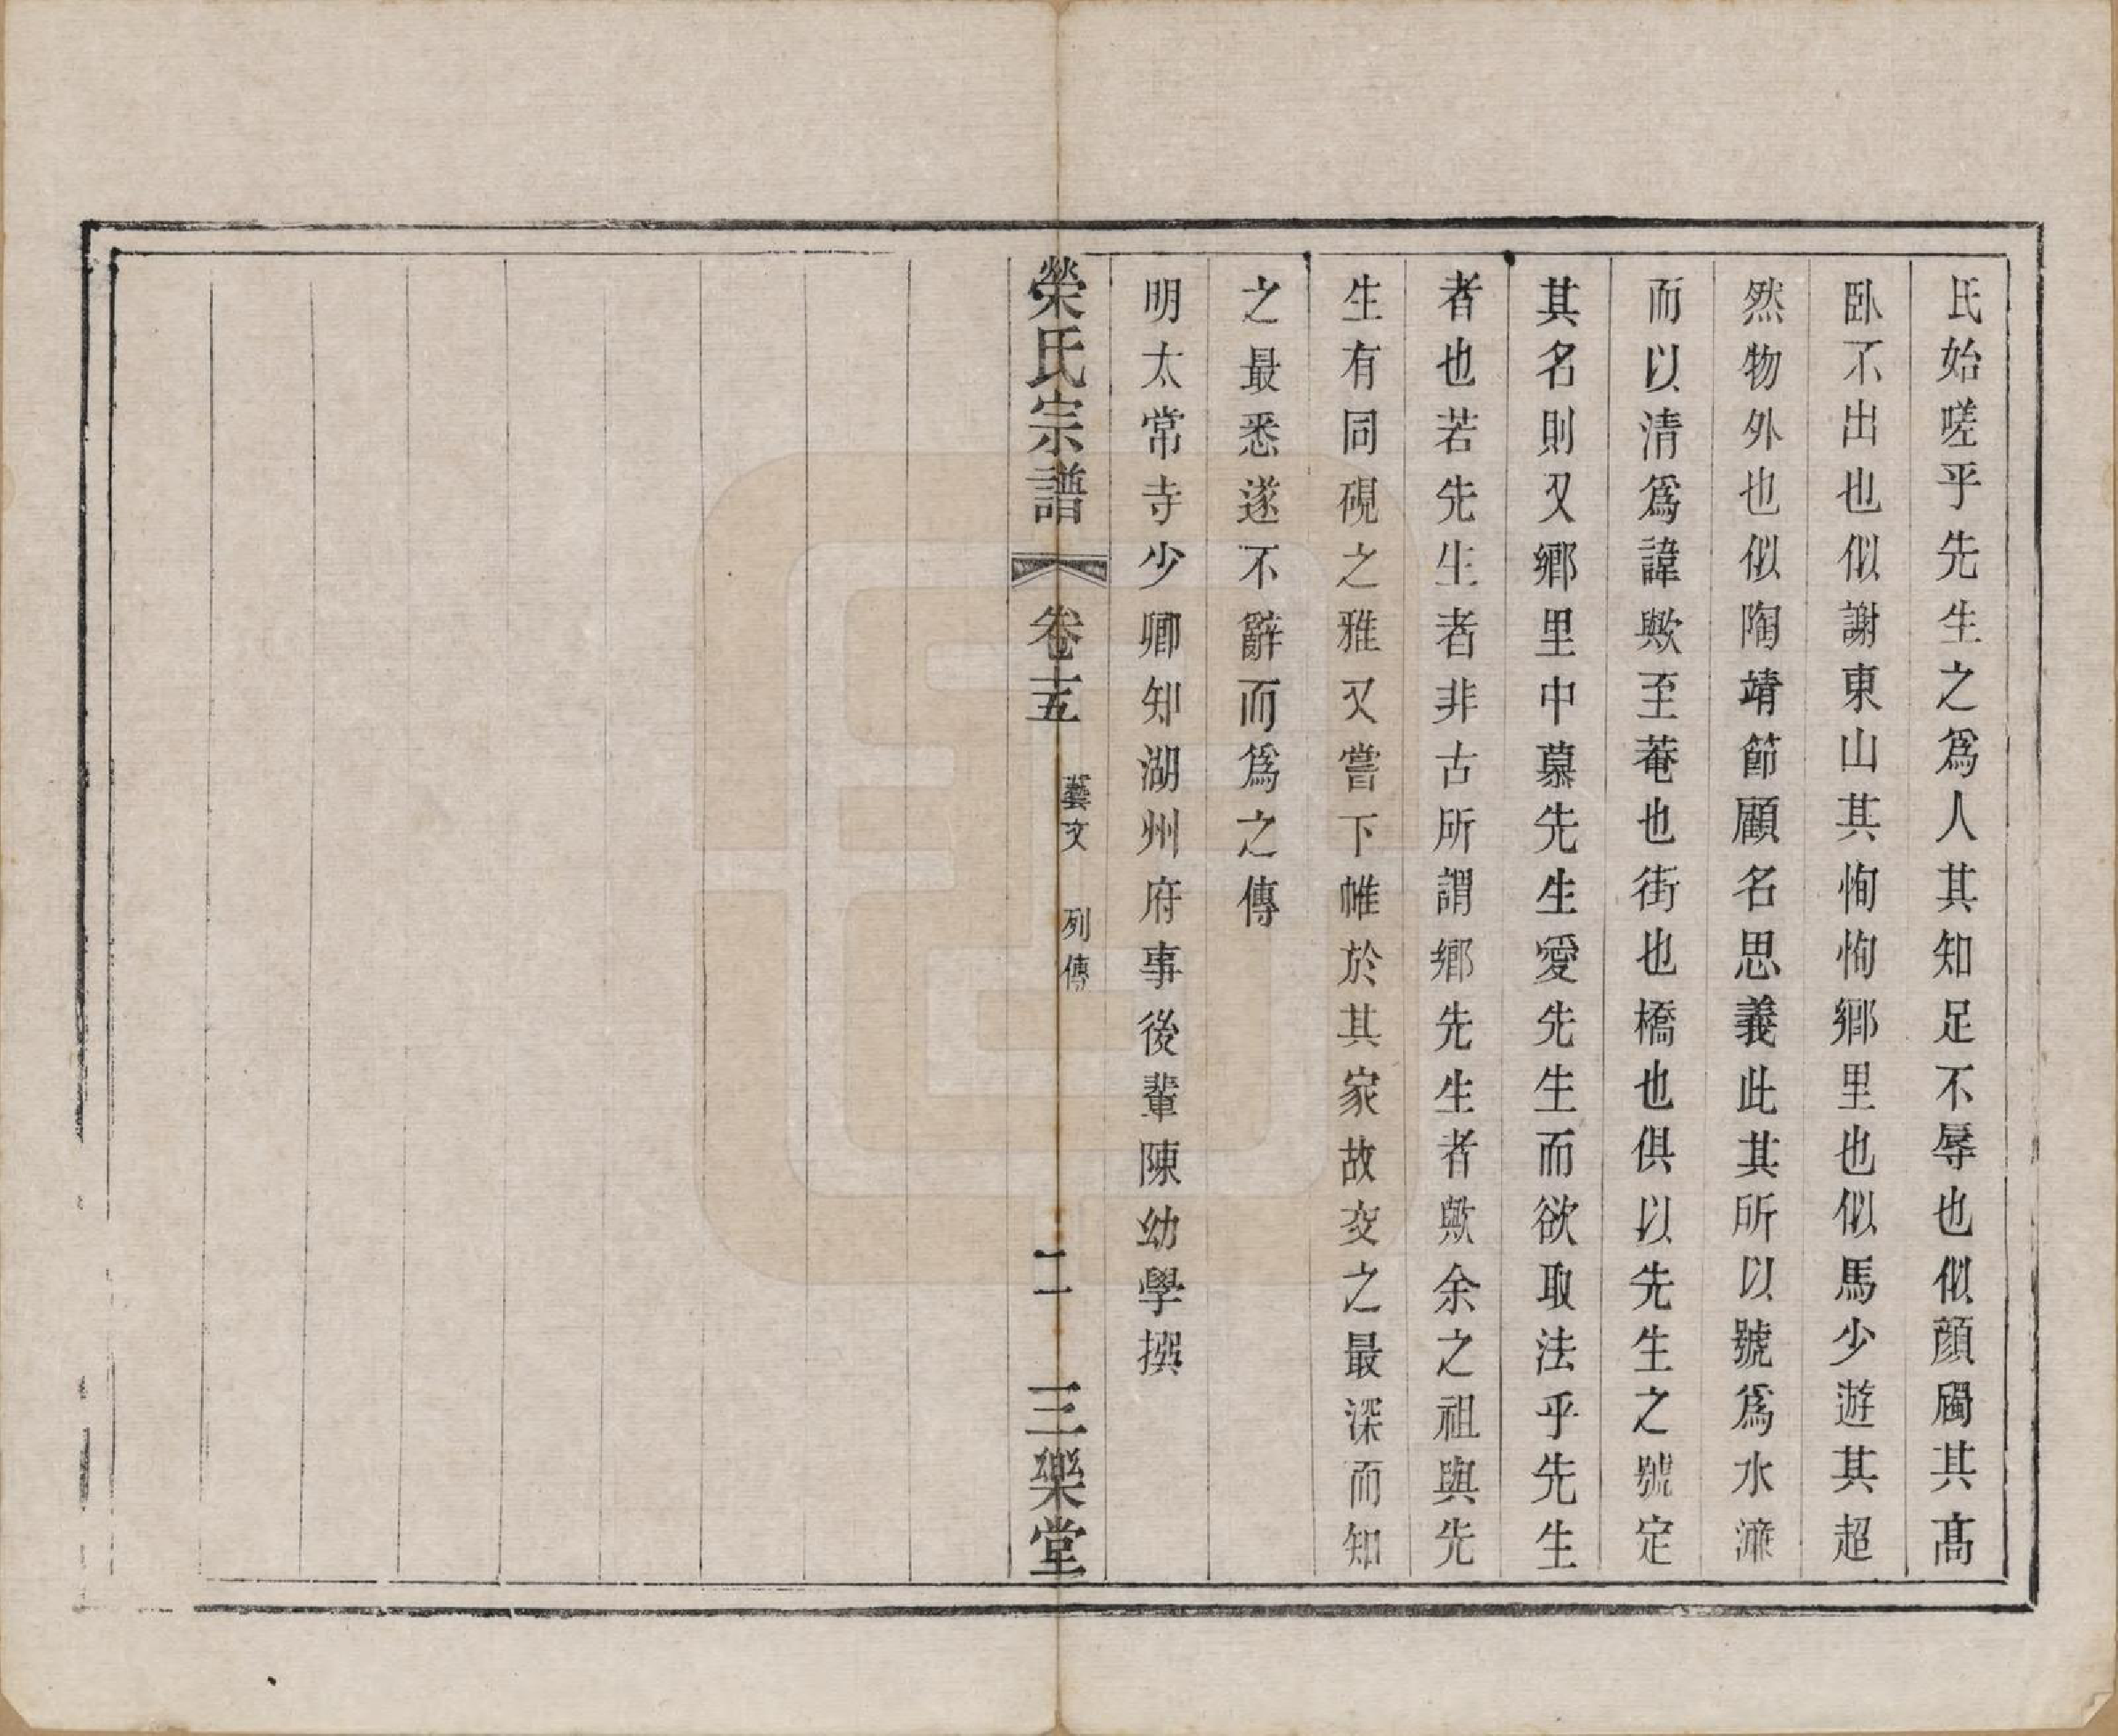 氏始嗟乎先生之爲人其知足不辱也似顔斶其髙
臥不出也似謝東山其恂恂鄉里也似馬少遊其超
然物外也似陶靖節顧名思義此其所以號爲水濂
而以清爲諱歟至菴也街也橋也俱以先生之號定
其名則又鄉里中慕先生愛先生而欲取法乎先生
者也若先生者非古所謂鄉先生者歟余之祖與先
生有同硯之雅又嘗下帷於其家故交之最深而知
之最悉遂不辭而爲之傳
明太常寺少卿知湖州府事後輩陳幼學撰
榮氏宗譜 卷十五 藝文 列傳 二 三樂堂